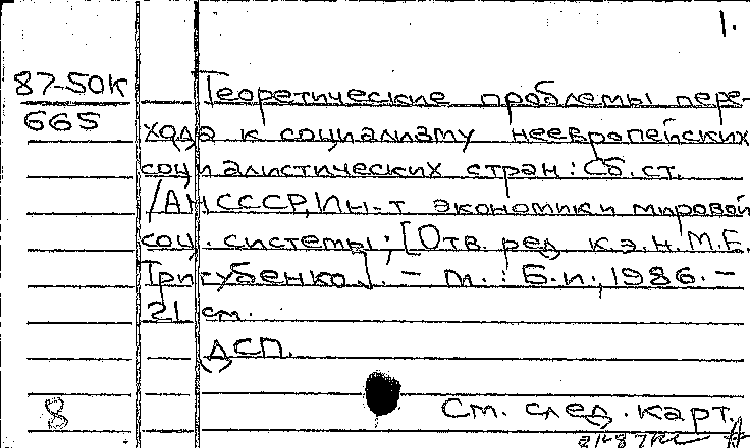 1.
87-50К
665
Теоретические проблемы пере-
хода к социализму неевропейских
социалистических стран: Сб. ст.
/АН СССР, Ин-т экономики мировой
соц. системы; [Отв. ред. к.э.н. М.Е.
Тригубенко]. – М.: Б.и., 1986. –
21 см.
ДСП.
8
См. след. карт.